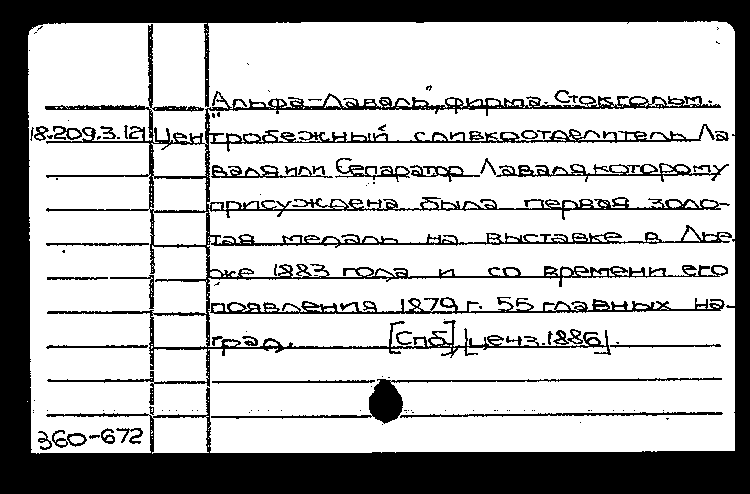 "Альфа-Лаваль", фирма. Стокгольм.
18.209.3.121 Центробежный сливкоотделитель Ла-
валя или Сепаратор Лаваля, которому
присуждена была первая золо-
тая медаль на выставке в Лье-
же 1883 года и со времени его
появления 1879 г. 55 главных на-
град. [Спб], [ценз. 1886].
360-672